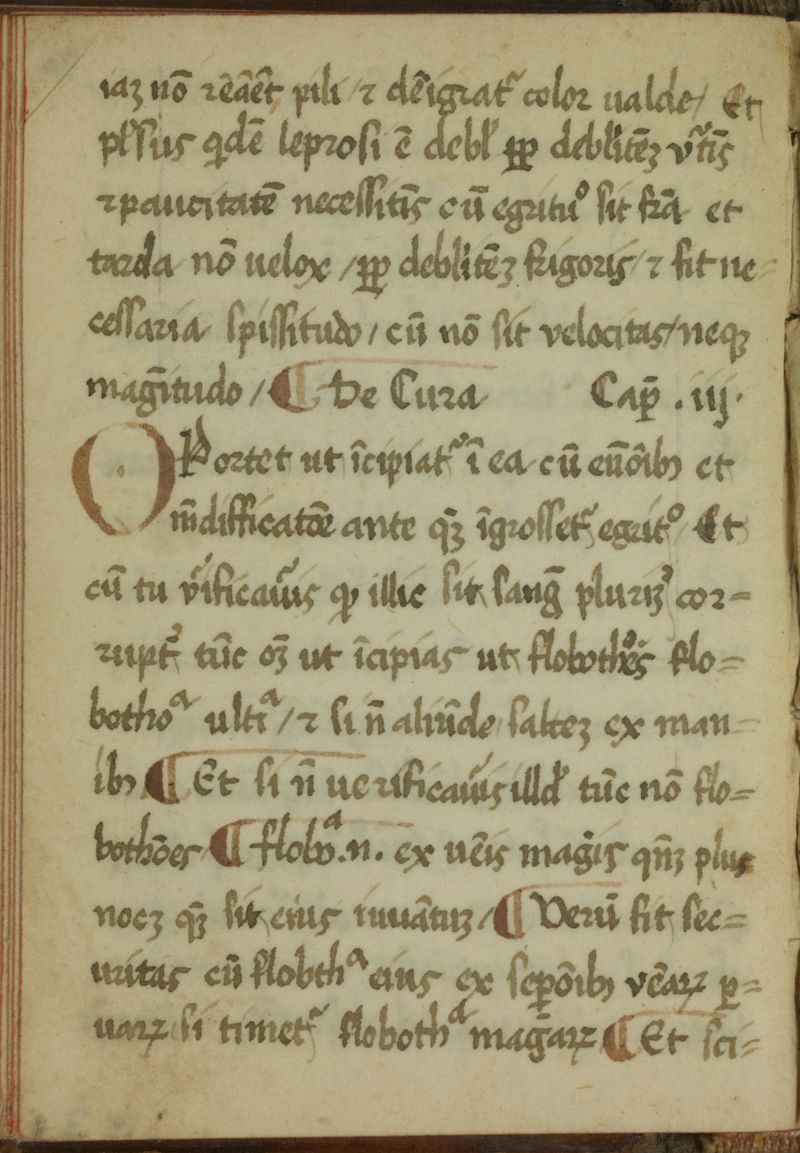 iaʒ nō reāēt pili ⁊ dēigrat᷑ color ualde / Et
pl̄sus qͥdē leprosi ē debl̓ ꝓpꝑ deblitēʒ v᷑tis̄
⁊ paucitatē necessitis̄ cū egrituᵒ sit fr̄a et
tarda nō uelox / ꝓpꝑ deblitēʒ frigoris / ⁊ fit ne=
cessaria spissitudo / cū nō sit velocitas / neqꝫ
mag̃itudo / ¶ De Cura Cap̄ .iij.
OPortet ut īcipiat᷑ ī ea cū euōibꝫ et
m̄difficatōe ante qꝫ̄ īgrosset᷑ egritᵒ / Et
cū tu v᷑ificau᷑is ꝙ illic sit sang̃ pluriꝫ̓ cor=
rupt᷑ tūc oꝫ̄ ut īcipias ut flobothōs̄ flo=
bothoᵃ ultīᵃ / ⁊ si n̄ aliūde salteʒ ex man=
ibꝫ ¶ Et si n̄ uerificau᷑is illd̓ tūc nō flo=
bothōes ¶ flobᵃ .n. ex uēis magis qn̄ʒ plus
nocʒ qꝫ̄ sit eius iuuātuʒ / ¶ Verū fit sec=
uritas cū flobthᵃ eius ex seꝑōibꝫ vēaꝝ ꝑ=
uaꝝ si timet᷑ flobothᵃ mag̃aꝝ ¶ Et sci=